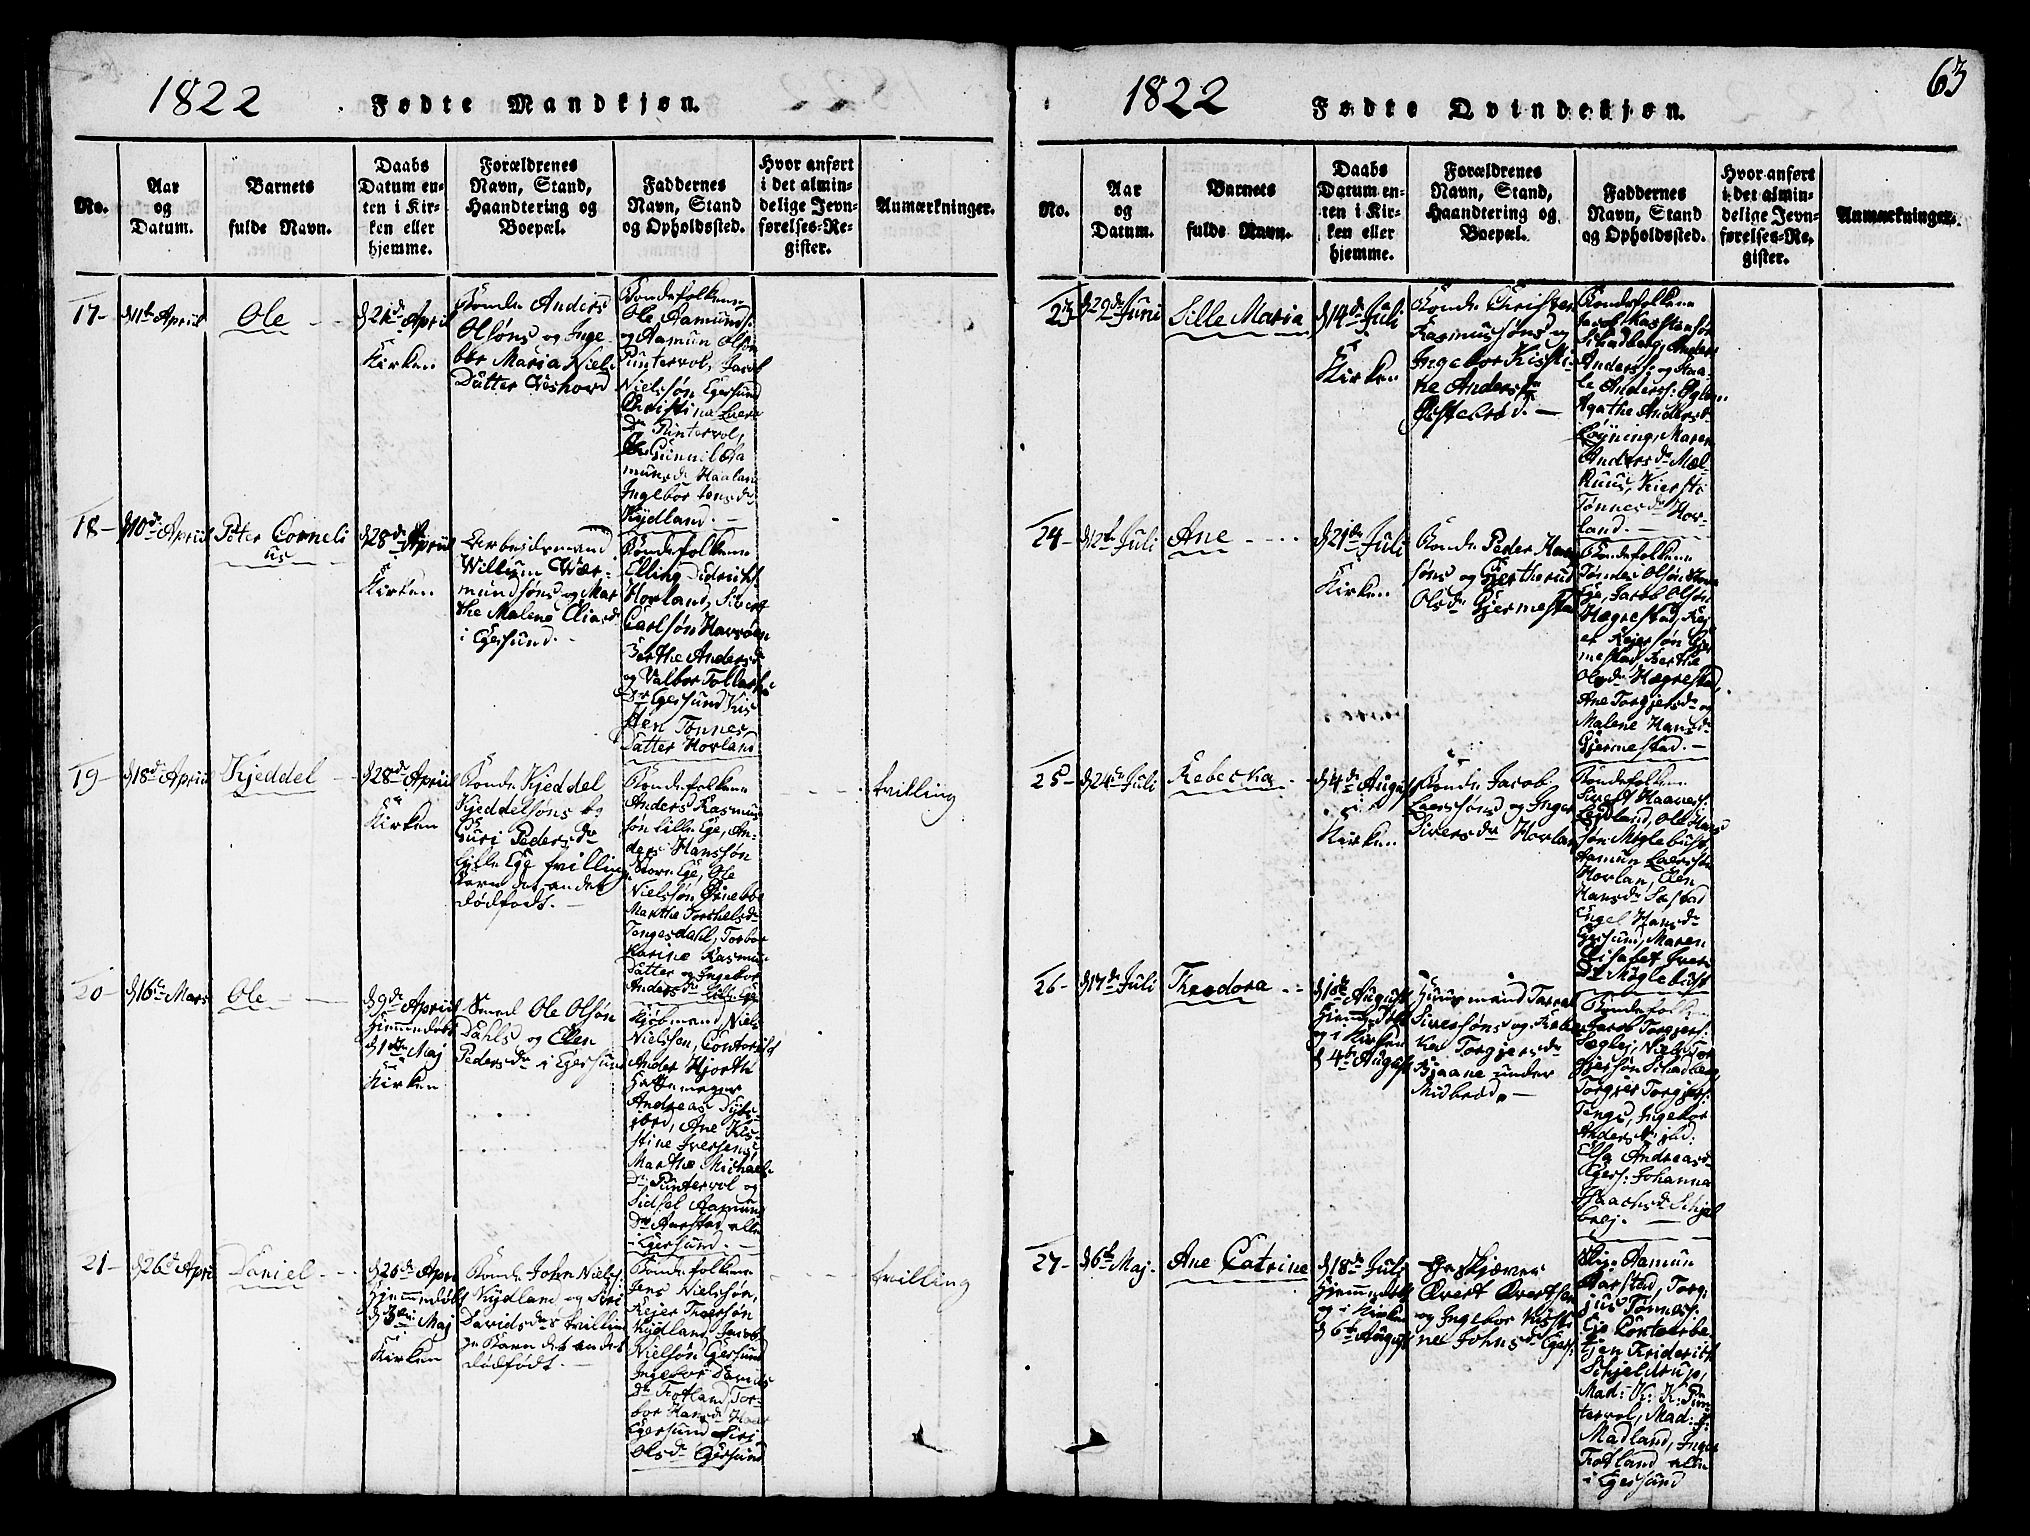 1822 Fødte Mandkjøn.
No.
Aar
og
Datum.
Barnets
fulde Navn.
Daabs
Datum en-
ten i Kir-
ken eller
hjemme.
Forældrenes
Navn, Stand,
Haandtering og
Boepæl.
Faddernes
Navn, Stand
og Opholdssted.
Hvor anført
i det almin-
delige Jevn-
førelses-Re-
gister.
Anmærkninger.
17-
d 11te April
Ole
d 21de April
i
Kirken
Bonde Anders
Olsøns og Inge-
bor Maria Niels
Datter
Bondefolkene
Ole Aamunds:
og Aamun Olsøn
Puntervol, Jacob
Nielssøn Egersund
Christina Laers
Dr Puntervol,
Gunnil Aa
munsdr Haaland
Ingebor Jensdr
Kydland.
18-
d 10de April
Peter Corneli
us
d 28de April
i
Kirken
Arbeidsmand
Willum Wær-
mundsøns og Mar
the Malene Eliasdr
i Egersund.
Bondefolkene
Elling Didrichs:
Horland, Sivert
Carlsøn Havsøen
Berthe Andersdr
og Valbor Tollefs
Dr Egersund Kis
ten Tønnes
Datter Horland
19-
d 18de April
Kjeddel
d 28de April
i
Kirken
Bonde Kjeddel
Kjeddelsøns og
Guri Pedersdr
Lille Ege tvilling
Barn det andet
dødfødt.
Bondefolkene
Anders Rasmus
søn Lille Ege, An-
ders Hanssøn
Store Ege, Ole
Nielssøn
Marthe Torkelsdr
Tengesdahl, Torbor
Karine Rasmus
Datter og Ingebor
Andersdr Lille Ege
tvilling
20-
d 16de Mars
Ole
d 9de April
Hjemmedøbt
d 1ste Maj
i
Kirken
Smed Ole Olsøn
Dahls og Ellen
Pedersdr i Egersund
Kjøbmand Niels
Nielsen, Contorist
Ander Hjorth
Hattemager
Andreas
Ane Kis-
tine Iversens
Marthe Michaels
Dr Puntervol og
Sidsel Aamuns
Dr Aarstad alle
i Egersund.
21-
d 26de April
Daniel
d 26de April
Hjemmedøbt
d 3die Maj
i
Kirken
Bonde John Niels:
Kydland og Siri
Davidsdr tvillin
ge Barn det andet
dødfødt.
Bondefolkene
Jens Nielssøn,
Rejer Iversøn
Kydland, Jacob
Nielsøn Egersund
Ingebor Davids
Dr Fotland, Tor-
bor Hansdr
Egersund Siri
Olsdr Egersund
tvilling
63
1822 Fødte Qvindekjøn.
No.
Aar
og
Datum.
Barnets
fulde Navn.
Daabs
Datum en-
ten i Kir-
ken eller
hjemme.
Forældrenes
Navn, Stand,
Haandtering og
Boepæl.
Faddernes
Navn, Stand
og Opholdssted.
Hvor anført
i det almin-
delige Jevn-
førelses-Re-
gister.
Anmærkninger.
23-
d 29de Juni
Sille Maria
d 14de Juli
i
Kirken
Bonde Christen
Rasmussøns og
Ingebor Kisti-
ne Andersdr
Bondefolkene
Skadberg, Anders
Anders: og Haa-
le Anders:
Agathe Andersdr
Løyning, Maren
Andersdr Mæl-
huus, Kiersti
Tønnesdr Hor-
land.
24-
d 12te Juli
Ane
d 21de Juli
i
Kirken
Bonde Peder Han
søns og Gjertherud
Olsdr Gjermestad
Bondefolkene
Tønnes Olsøn Store
Ege, Jacob Olsøn
Hægrestad, Rej
er Rejersøn Gjer
mestad, Berthe
Olsdr Hægrestad,
Ane Torgjersdr og
Malene Hansdr
Gjermestad.
25-
d 24de Juli
Rebecka
d 4de August
i
Kirken
Bonde Jacob
Laerssøns og Inger
Siversdr Horlan
Bondefolkene
Sivert Haaves:
Kydland, Ole Hans
søn Myglebust
Aamun Laerssøn
Horlan, Elen
Hansdr Sæstad
Engel Hansdr
Egersund, Maren
Elisabet Ivers
Dr Myglebust
26-
d 17de Juli
Theodora
d 1ste August
Hjemmedøbt
og i Kirken
d 4de August
Huusmand Tarral
Siversøns og Rebe
ka Torgjersdr
Bjaane under
Midbrød.
Bondefolkene
Jacob Torgjers:
Sæglej, Niels Tor
gjersøn Skadberg,
Torgjer Torgjers:
Tengs, Ingebor
Anders
Elsa Andreasdr
Egers: Johanna
Isaachsdr Skjel
brej.
27-
d 6te Maj.
Ane Catrine
d 18de Juli
Hjemmedøbt
og i Kirken
d 6te August
Evert Evertsen
og Ingebor Kisti
ne Johnsdr Egers:
Skp: Aamun
Aarstad, Torg
jus Tønnes:
Eje
Friderich
Schjeldrup,
Mad: K: K: Pun
tervol, Mad:
Madland, Inger
Fotland alle
i Egersund